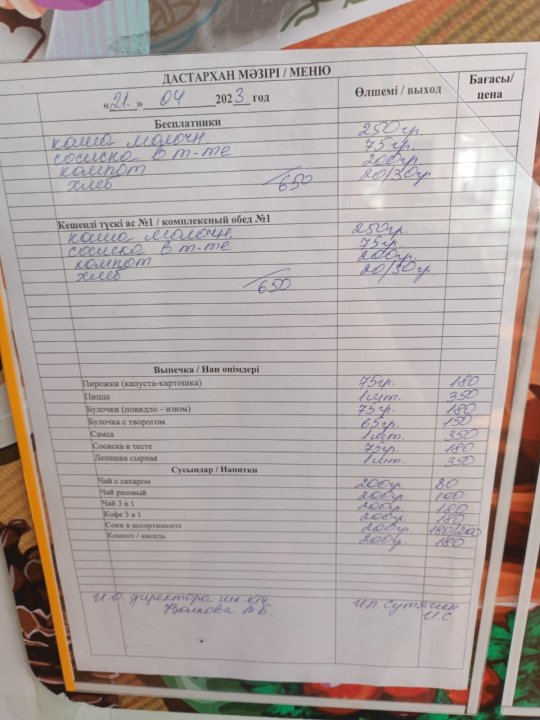 ДАСТАРХАН МӘЗІРІ / МЕНЮ Өлшемі / выход Бағасы/ цена
«21» 04 2023 год
Бесплатники
каша молочн. 250гр.
сосиска в т-те 75гр.
компот 200гр.
хлеб 20/30гр
/650
Кешенді түскі ас №1 / комплексный обед №1
каша молочн. 250гр.
сосиска в т-те 75гр.
компот 200гр.
хлеб 20/30гр.
/650
Выпечка / Нан өнімдері
Пирожки (капуста-картошка) 75гр. 180
Пицца 1шт. 350
Булочки (повидло - изюм) 75гр. 180
Булочка с творогом 65гр. 150
Самса 1шт. 350
Сосиска в тесте 75гр. 180
Лепешка сырная 1шт. 350
Сусындар / Напитки
Чай с сахаром 200гр. 80
Чай разовый 200гр. 100
Чай 3 в 1 200гр.
Кофе 3 в 1 200гр. 180
Соки в ассортименте 200гр. 180/200
Компот / кисель 200гр. 180
И.о. директора шк. №14 ИП Сутягин
И.С